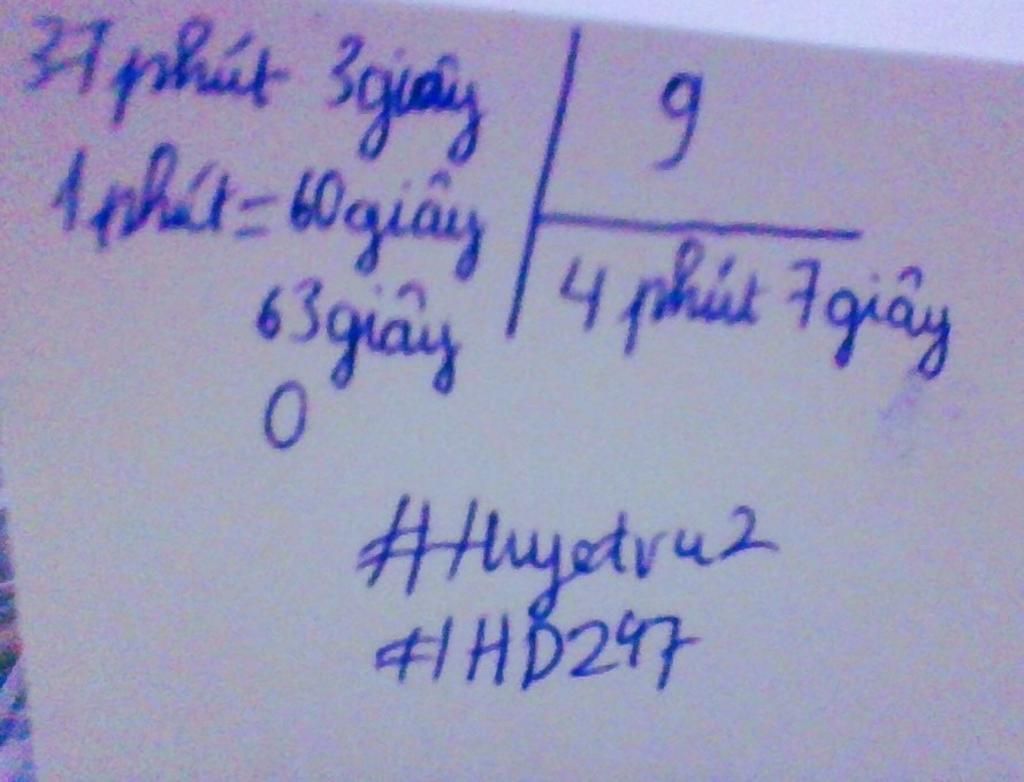 37 phút 3 giây 9
1 phút = 60 giây
4 phút 7 giây
63 giây
0
#Huyedvu2
#HD247